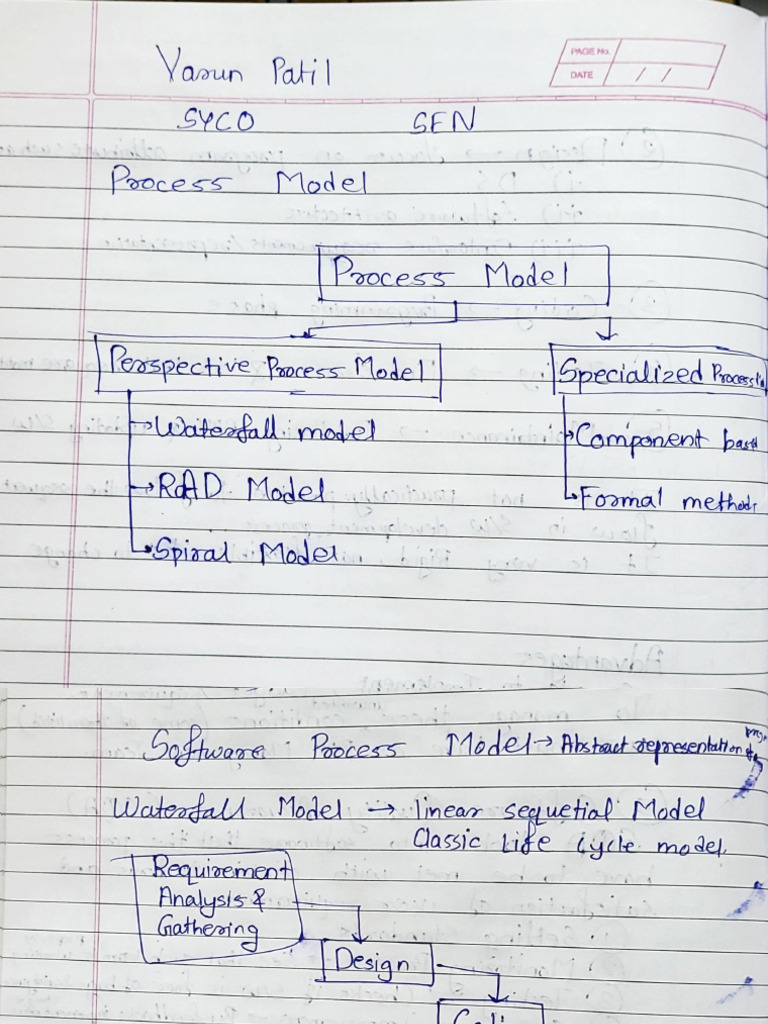 Varun Patil
PAGE No.
DATE / /
SYCO SEN
Process Model
Process Model
Perspective Process Model
Specialized Process
Waterfall model
Component based
RAD Model
Formal methods
Spiral Model
Software Process Model → Abstract representation of
Waterfall Model → linear sequetial Model
Classic Life Cycle model
Requirement
Analysis &
Gathering
Design